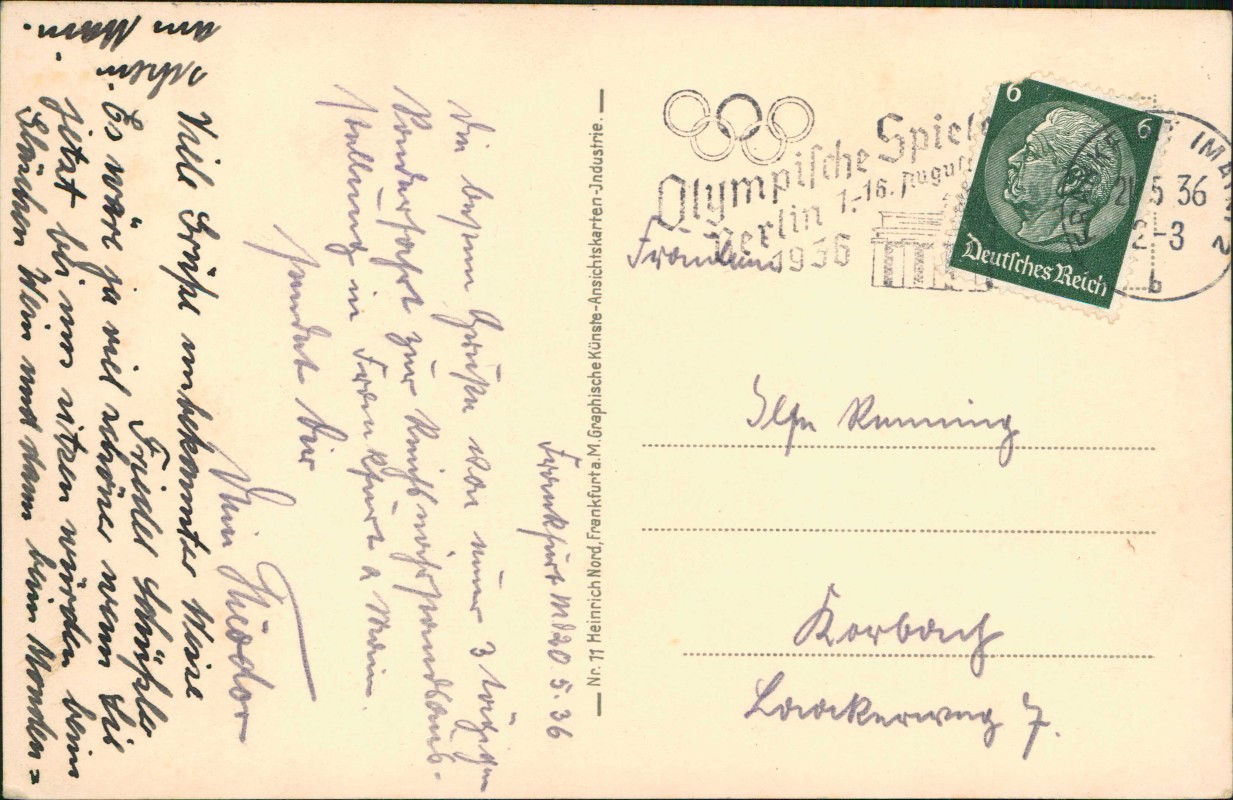 Olympische Spiele
Berlin 1.-16. August
1936
6 6
Deutsches Reich
21 5 36
2-3
b
Fräulein
Ilse
Korbach
7.
Nr. 11 Heinrich Nord, Frankfurt a. M. Graphische Künste-Ansichtskarten-Industrie.
Frankfurt M d 20. 5. 36
Die besten Grüße von einer 3 tägigen
Sonderfahrt zur Reichsnährstandsaus-
stellung in Frankfurt a Main.
sendet Dir
Dein Theodor
Viele Grüße unbekannter Weise
Friedel
Es wäre ja viel schöner wenn Sie
jetzt bei uns sitzen würden beim
Gläschen Wein und dann beim Monden=
schein
am Main.